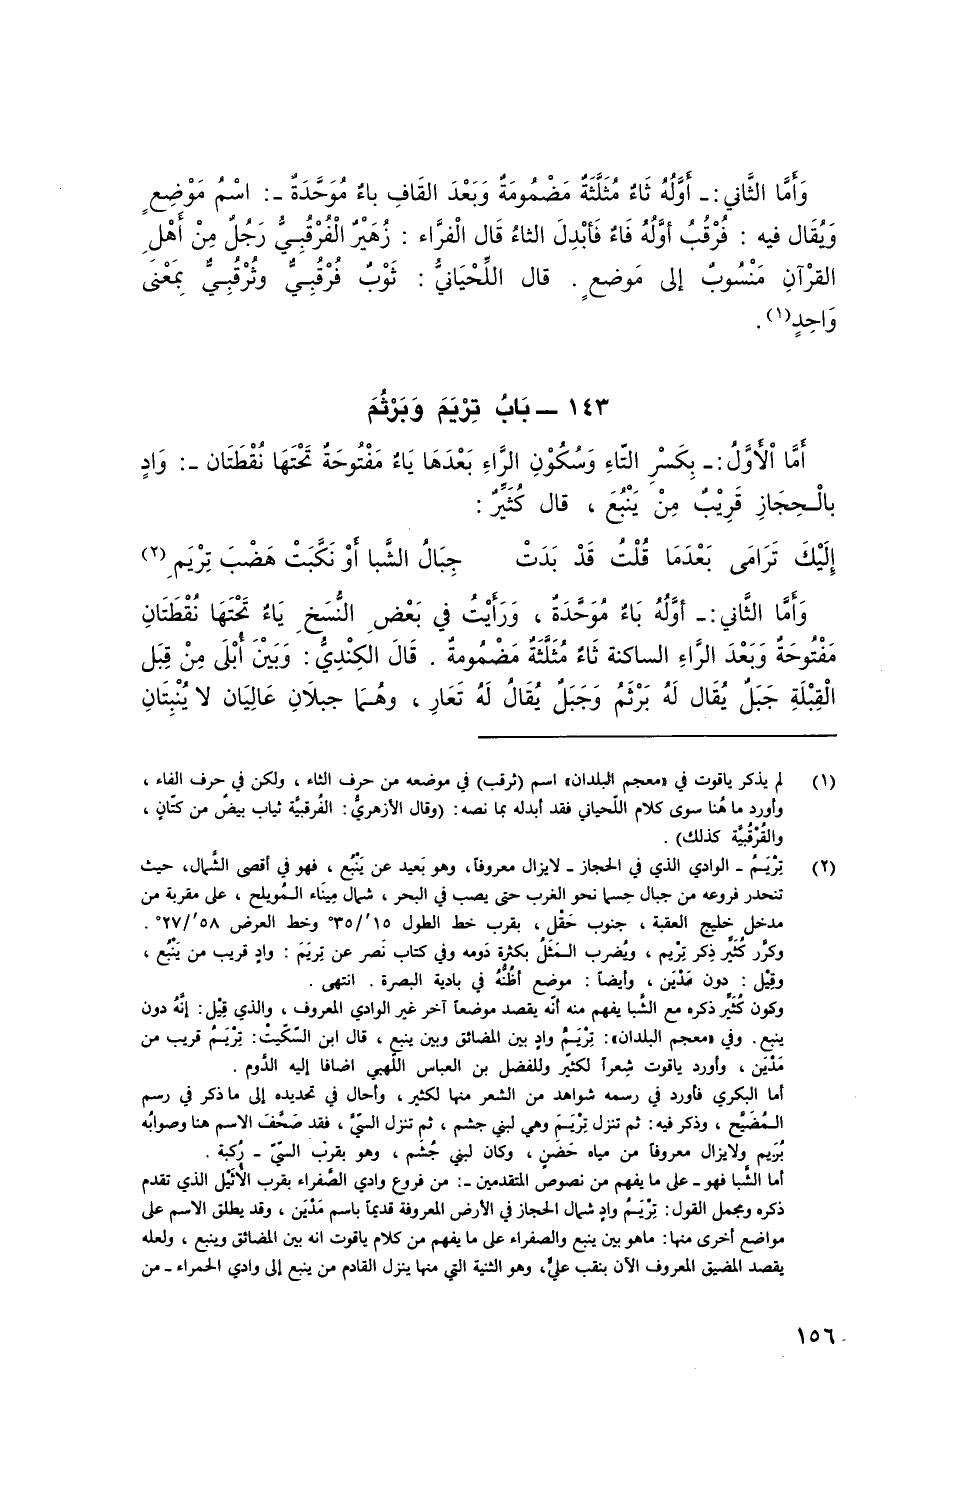 وَأَمَّا الثَّاني :ـ أَوَّلُهُ ثَاءٌ مُثَلَّثَةٌ مَضْمُومَةٌ وَبَعْدَ القَافِ باءٌ مُوَحَّدَةٌ ـ: اسْمُ مَوْضِعٍ
وَيُقَال فيه : فُرْقُبُ أَوَّلُهُ فَاءٌ فَأُبْدِلَ الثاءُ قَال الْفرَّاء : زُهَيْرٌ الْفُرْقُبِيُّ رَجُلٌ مِنْ أَهْلِ
القرْآنِ مَنْسُوبٌ إلى مَوضعٍ . قال اللِّحْيَانيُّ : ثَوْبٌ فُرْقُبِيٌّ وثُرْقُبِيٌّ بِمَعْنَى
وَاحِدٍ(١) .
١٤٣ ــ بَابُ تِرْيَمَ وَبَرْثُمَ
أَمَّا اْلأَوَّلُ :ـ بِكَسْرِ التّاءِ وَسُكُوْنِ الرَّاءِ بَعْدَهَا يَاءٌ مَفْتُوحَةٌ تَحْتَهَا نُقْطَتَان ـ: وَادٍ
بالْـحِجَازِ قَرِيْبٌ مِنْ يَنْبُعَ ، قال كُثَيِّرٌ :
إِلَيْكَ تَرَامَى بَعْدَمَا قُلْتُ قَدْ بَدَتْ جِبَالُ الشَّبا أَوْ نَكَّبَتْ هَضْبَ تِرْيَمِ(٢)
وَأَمَّا الثَّاني :ـ أَوَّلُهُ بَاءٌ مُوَحَّدَةٌ ، وَرَأَيْتُ في بَعْضِ النُّسَخِ يَاءٌ تَحْتَهَا نُقْطَتَانِ
مَفْتُوحَةٌ وَبَعْدَ الرَّاءِ الساكنة ثَاءٌ مُثَلَّثَةٌ مَضْمُومةٌ . قَالَ الكِنْدِيُّ : وَبَيْنَ أُبْلَى مِنْ قِبَل
الْقِبْلَةِ جَبَلٌ يُقَال لَهُ بَرْثَمُ وَجَبَلٌ يُقَالُ لَهُ تَعَارِ ، وهُـمَا جبلَانِ عَالِيَان لا يُنْبِتَانِ
(١) لم يذكر ياقوت في «معجم البلدان» اسم (ثرقب) في موضعه من حرف الثاء ، ولكن في حرف الفاء ،
وأورد ما هُنا سوى كلام اللّحياني فقد أبدله بما نصه : (وقال الأزهريُّ : الفُرقبيَّة ثياب بيضٌ من كتّانٍ ،
والفُرْقُبيَّة كذلك) .
(٢) تِرْيَمُ ـ الوادي الذي في الحجاز ـ لايزال معروفاً، وهو بَعيد عن يَنْبُع ، فهو في أقصى الشَّمال، حيث
تنحدر فروعه من جبال حسما نحو الغرب حتى يصب في البحر ، شمال مِينَاء الـمُويلح ، على مقربة من
مدخل خليج العقبة ، جنوب حَقْل ، بقرب خط الطول ١٥َ/٣٥° وخط العرض ٥٨َ/٢٧° .
وكرَّر كُثَيِّر ذِكر تِرْيم ، ويُضرب الـمَثَلُ بكثرة دَومه وفي كتاب نَصر عن تِريَمَ : وادٍ قريب من يَنْبُع ،
وقِيْل : دون مَدْيَن ، وأيضاً : موضع أظُنُّهُ في بادية البصرة . انتهى .
وكون كُثَيِّر ذكره مع الشَّبا يفهم منه أنّه يقصد موضعاً آخر غير الوادي المعروف ، والذي قِيْل : إنَّهُ دون
ينبع . وفي «معجم البلدان» : تِرْيَـمُ وادٍ بين المضائق وبين ينبع ، قال ابن السّكّيتْ : تِرْيَـمُ قريب من
مَدْيَن ، وأورد ياقوت شِعراً لكثيّر وللفضل بن العباس اللّهبي اضافا إليه الدَّوم .
أما البكري فأورد في رسمه شواهد من الشعر منها لكثير ، وأحال في تحديده إلى ما ذكر في رسم
الـمُضَيَّح ، وذكر فيه : ثم تنزل تِرْيَـمَ وهي لبني جشم ، ثم تنزل السيَّ ، فقد صَحَّفَ الاسم هنا وصوابُه
بُرَيم ولايزال معروفاً من مياه حَضَنٍ ، وكان لبني جُشَم ، وهو بقربْ السيّ ـ رُكبة .
أما الشَّبا فهو ـ على ما يفهم من نصوص المتقدمين ـ: من فروع وادي الصَّفراء بقرب الأُثَيْل الذي تقدم
ذكره ومجمل القول : تِرْيَـمُ وادٍ شمال الحجاز في الأرض المعروفة قديماً باسم مَدْيَن ، وقد يطلق الاسم على
مواضع أخرى منها : ماهو بين ينبع والصفراء على ما يفهم من كلام ياقوت انه بين المضائق وينبع ، ولعله
يقصد المضيق المعروف الآن بنقب عليٍّ، وهو الثنية التي منها ينزل القادم من ينبع إلى وادي الحمراء ـ من
١٥٦